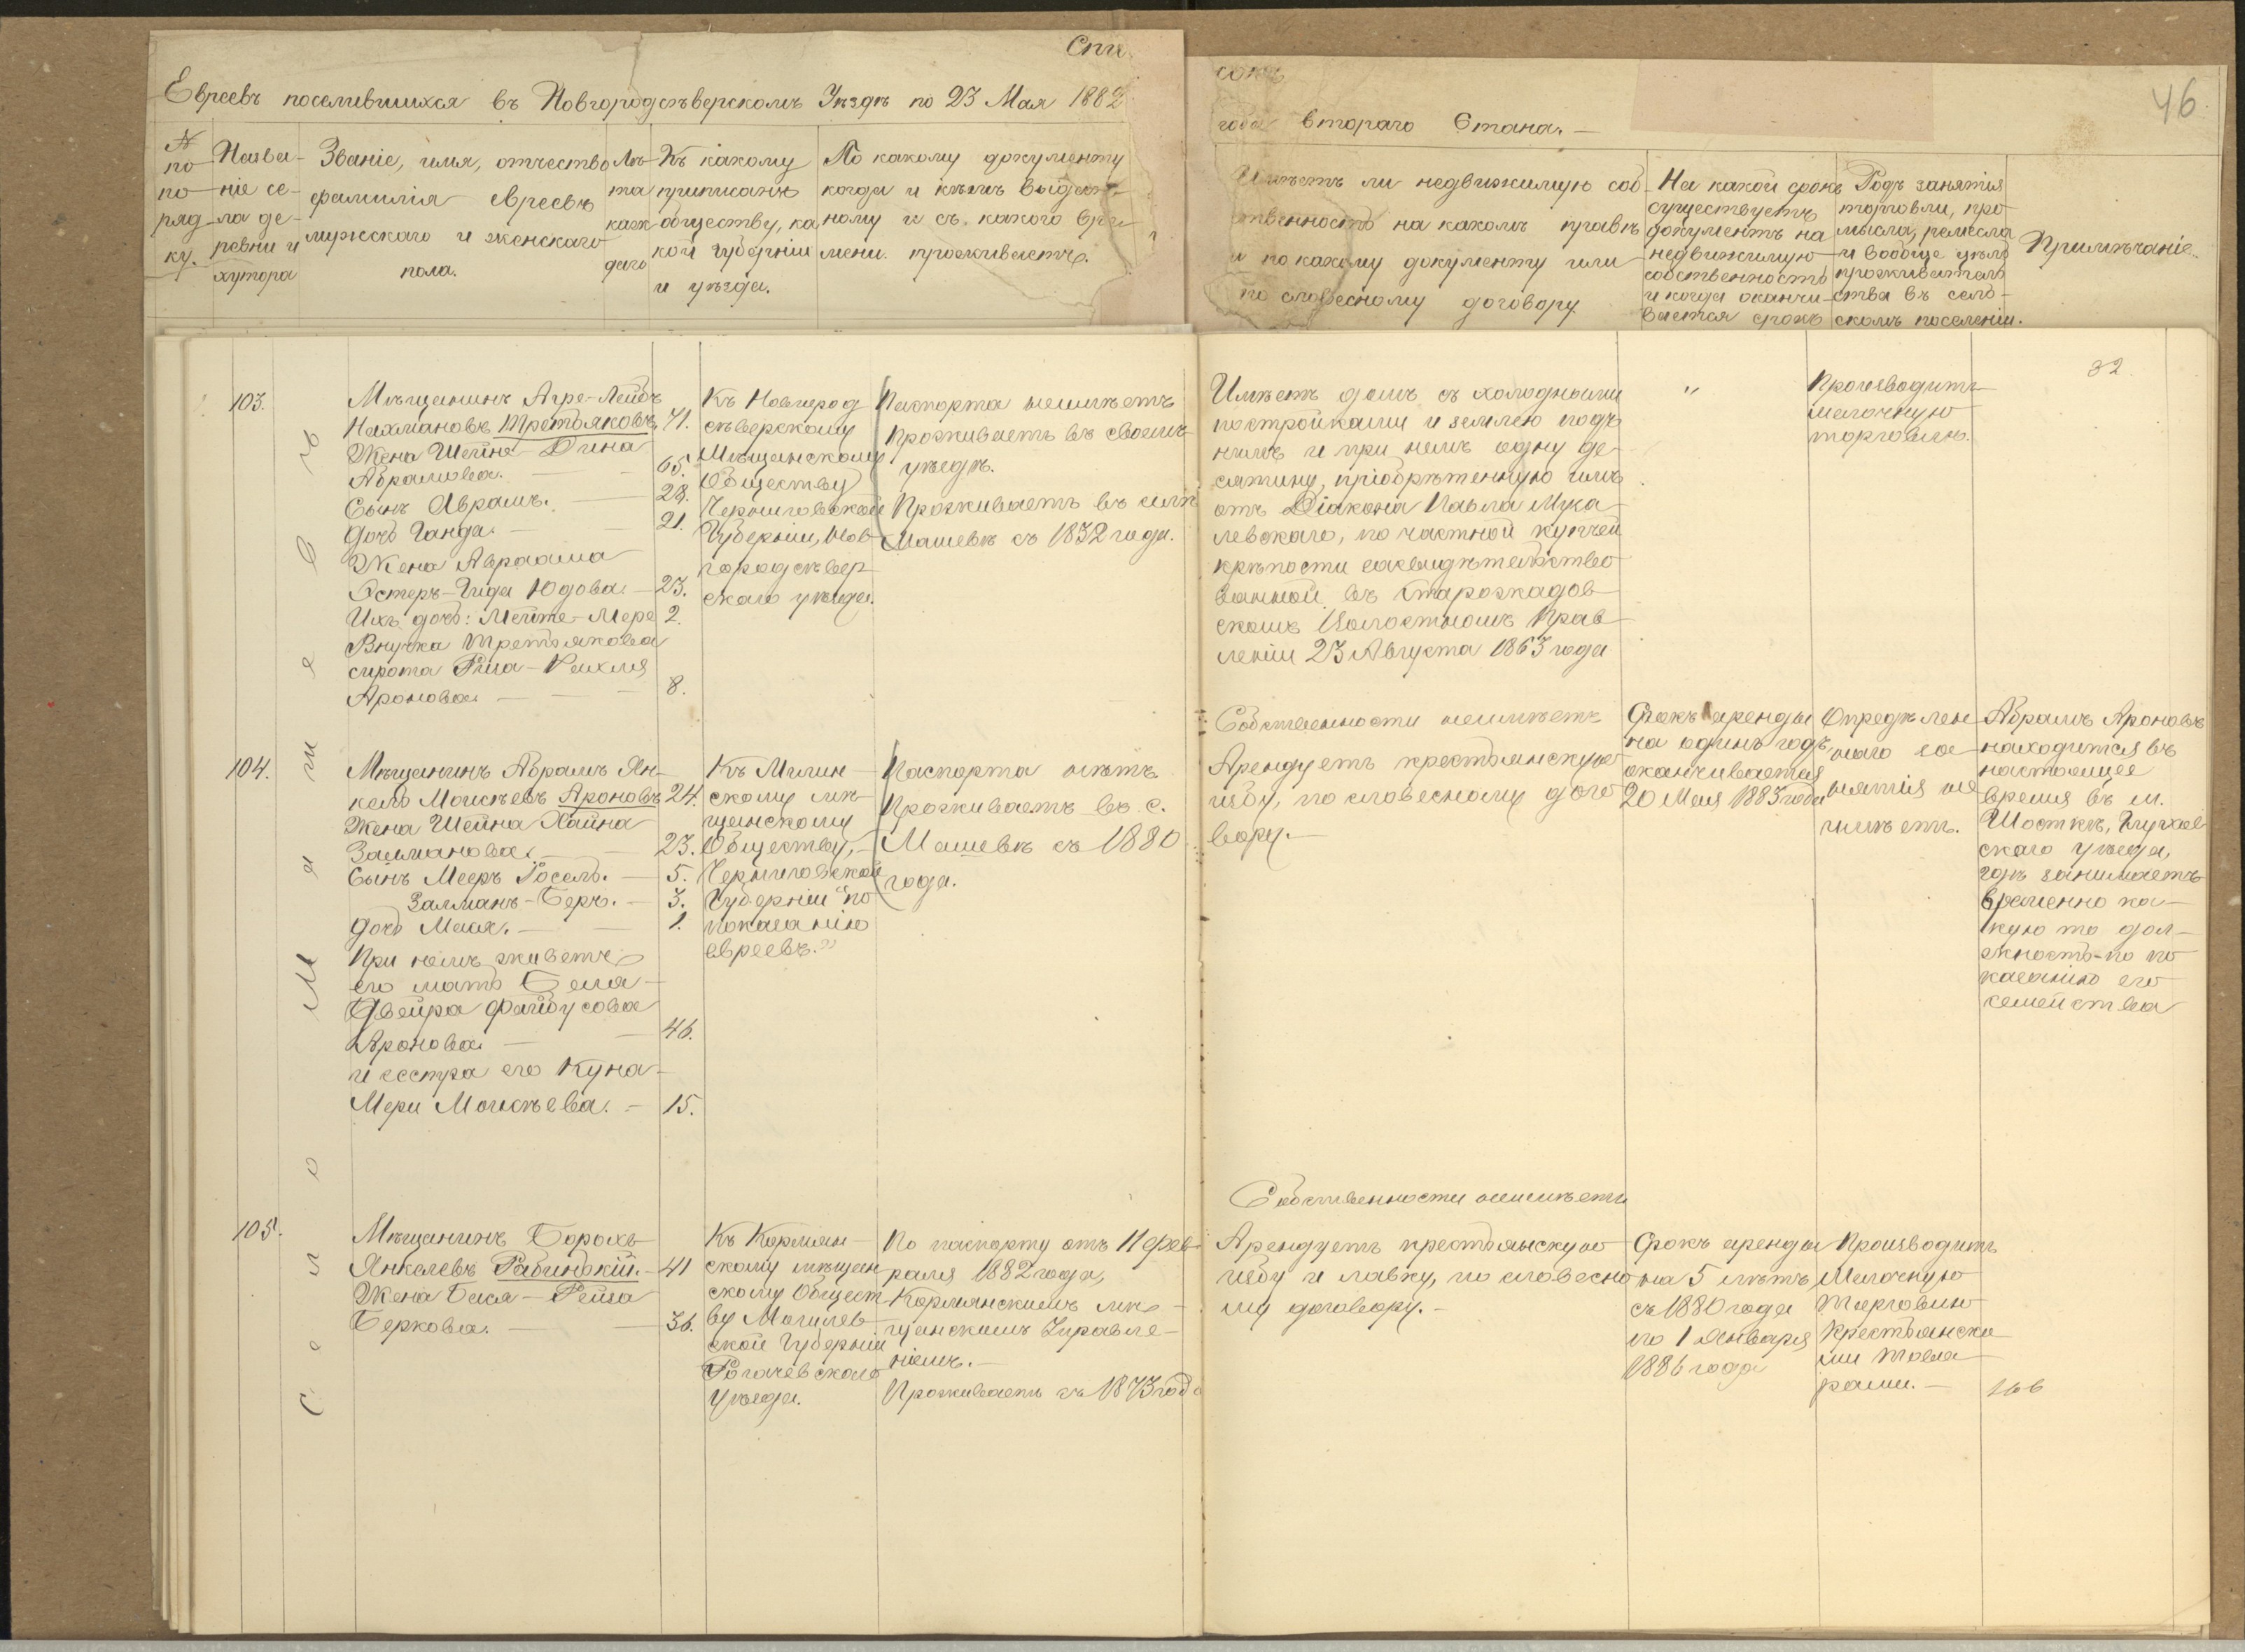 Списокъ
Евреевъ поселившихся въ Новгородсѣверскомъ Уѣздѣ по 23 Мая 1882
года втораго Стана.
46
№ по порядку.
Названіе села деревни и хутора
Званіе, имя, отчество
фамилія евреевъ
мужскаго и женскаго
пола.
Лѣта каждаго
Къ какому
приписанъ
обществу, ка
кой губерніи
и уѣзда.
По какому документу
когда и кѣмъ выдан-
ному и съ какого вре-
мени проживаетъ.
Имѣетъ ли недвижимую соб
ственность на какомъ правѣ
и по какому документу или
по словесному договору
На какой срокъ
существуетъ
документъ на
недвижимую
собственность
и когда оканчи-
вается срокъ
Родъ занятія
торговли, про
мысла, ремесла
и вообще цѣль
прожиatель
ства въ сель-
скомъ поселеніи.
Примѣчаніе.
32
Село Машевъ
103.
Мѣщанинъ Агре-Лейбъ
Нахмановъ Третьяковъ, 71.
Жена Шейна-Дина
Абрамова. 65.
Сынъ Аврамъ. 28.
Дочь Ганда. 21.
Жена Авраама
Эстеръ-Гида Юдова 23.
Ихъ дочь: Мейте-Мере 2.
Внучка Третьякова
сирота Рша-Рейхля
Аронова 8.
Къ Новгород
сѣверскому
Мѣщанскому
Обществу
Черниговской
Губерніи, Нов
городсѣвер
скаго уѣзда.
Паспорта неимѣетъ
Проживаетъ въ своемъ
уѣздѣ.
Проживаетъ въ селѣ
Машевѣ съ 1832 года.
Имѣетъ домъ съ холодными
постройками и землею подъ
нимъ и при немъ одну де-
сятину, пріобрѣтенную имъ
отъ Діакона Павла Мука-
левскаго, по частной купчей
крѣпости засвидѣтельство
ванной въ Старогкадов
скомъ Волостномъ Прав
леніи 23 Августа 1863 года
"
Производитъ
мелочную
торговлю.
104.
Мѣщанинъ Абрамъ Ян-
кель Моисѣевъ Ароновъ 24.
Жена Шейна Хайна
Залманова. 23.
Сынъ Мееръ Іосель. 5.
Залманъ-Беръ. 3.
Дочь Мася. 1.
При немъ живетъ
его мать Бела-
Двейра Файбусова
Аронова 46.
и сестра его Куна-
Мери Моисѣева. 15.
Къ Мглин
скому мѣ-
щанскому
Обществу,
Черниговской
Губерніи "по
показанію
евреевъ."
Паспорта нѣтъ
Проживаетъ въ с.
Машевѣ съ 1880
года.
Собственности неимѣетъ
Арендуетъ крестьянскую
избу, по словесному дого
вору.
Срокъ аренды
на одинъ годъ,
оканчивается
20 Мая 1883 года
Опредѣлен
наго за
нятія не
имѣетъ.
Абрамъ Ароновъ
находится въ
настоящее
время въ м.
Шосткѣ, Глухов
скаго уѣзда,
гдѣ занимаетъ
временно ка-
кую то дол-
жность-по по
казанію его
семейства
105.
Мѣщанинъ Борохъ
Янкелевъ Рабинскій. 41
Жена Бася-Рейза
Беркова. 36.
Къ Кормян
скому мѣщан
скому Общест
ву Могилев
ской Губерніи
Рогачевскаго
Уѣзда.
По паспорту отъ 11 фев
раля 1882 года,
Кормянскимъ мѣ-
щанскимъ Управле-
ніемъ.
Проживаетъ съ 1873 года
Собственности неимѣетъ
Арендуетъ крестьянскую
избу и лавку, по словесно
му договору.
Срокъ аренды
на 5 лѣтъ,
съ 1880 года
по 1 Января
1886 года
Производитъ
Мелочную
Торговлю
Крестьянски
ми Това
рами.
166